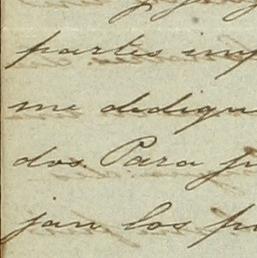 partes imp
me dediqu
dos. Para p
jan los p